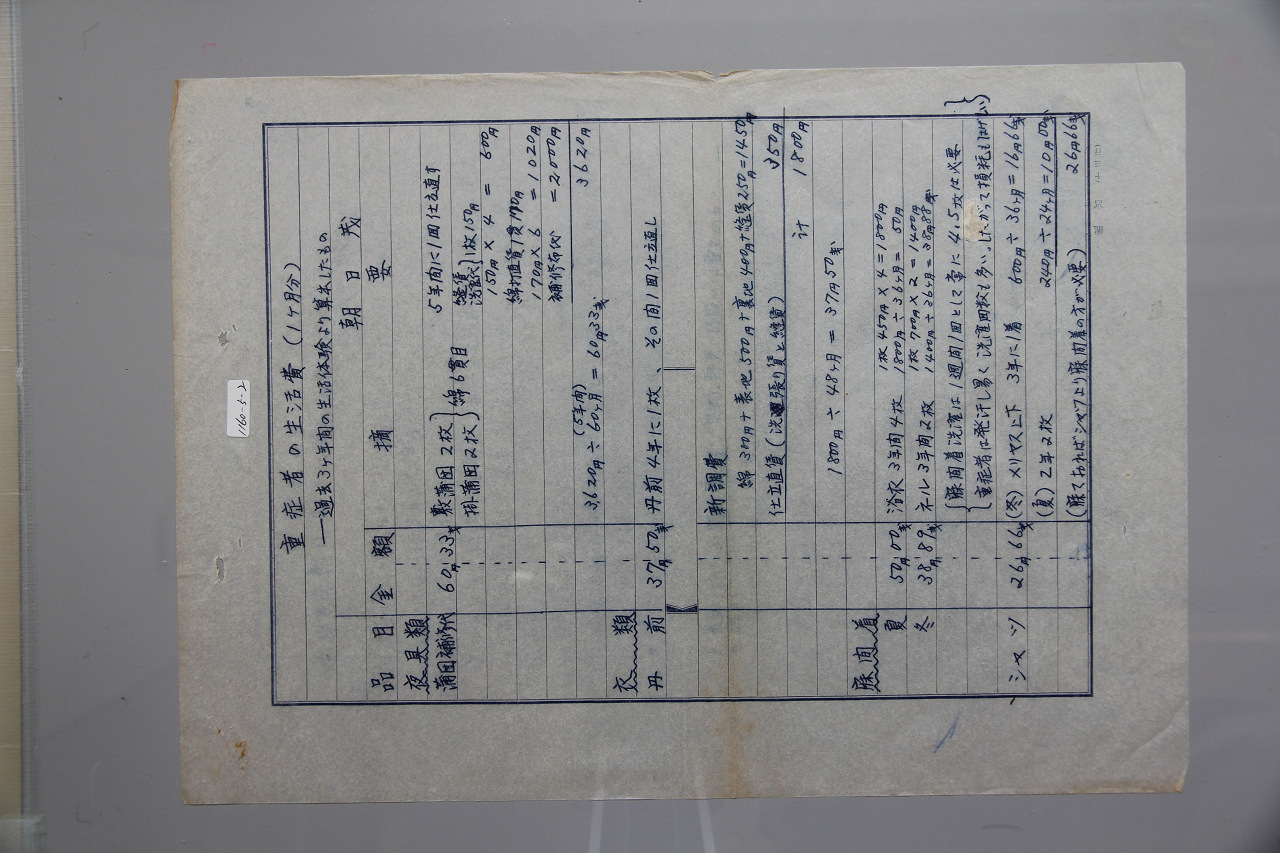 1160-5-2
重症者の生活費(1ヶ月分)
──過去3ヶ年間の生活体験より算出したもの
朝日茂
品目 金額 摘要
夜具類
蒲団補修代 60円33戋 敷蒲団2枚 掛蒲団2枚 綿6貫目 5年間に1回仕立直す
縫賃 洗濯代 1枚150円
150円×4=600円
綿打直賃1貫170円
170円×6=1020円
補修布代=2000円
3620円
(5年間)
3,620円÷60ヶ月=60円33戋
衣類
丹前 37円50戋 丹前4年に1枚、その間1回仕立直し
新調費
綿300円+表地500円+裏地400円+縫賃250円=1450円
仕立直賃(洗濯張り賃と縫賃) 350円
計 1800円
1800円÷48ヶ月=37円50戋
寝間着
夏 50円00戋 浴衣3年間4枚 1枚450円×4=1800円
1800円÷36ヶ月=50円
冬 38円89戋 ネル3年間2枚 1枚700円×2=1400円
1400円÷36ヶ月=38円88戋
寝間着洗濯は1週間1回として常に4.5枚は必要
重症者は発汗し易く洗濯回数も多い。したがって損耗もはげしい
シャツ 26円66戋 (冬)メリヤス上下 3年に1着 600円÷36ヶ月=16円66戋
(夏)2年2枚 240円÷24ヶ月=10円00戋
(寝ておればシャツより寝間着の方が必要) 26円66戋